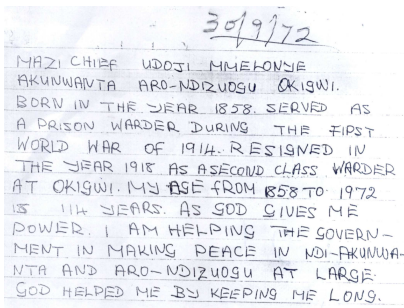 30/9/72
MAZI CHIEF UDOJI MMELONYE
AKUNWANTA ARO-NDIZUOGU OKIGWI.
BORN IN THE YEAR 1858. SERVED AS
A PRISON WARDER DURING THE FIRST
WORLD WAR OF 1914. RESIGNED IN
THE YEAR 1918 AS ASECOND CLASS WARDER
AT OKIGWI. MY AGE FROM 1858 TO 1972
IS 114 YEARS. AS GOD GIVES ME
POWER. I AM HELPING THE GOVERN-
MENT IN MAKING PEACE IN NDI-AKUNWA-
NTA AND ARO-NDIZUOGU AT LARGE.
GOD HELPED ME BY KEEPING ME LONG.